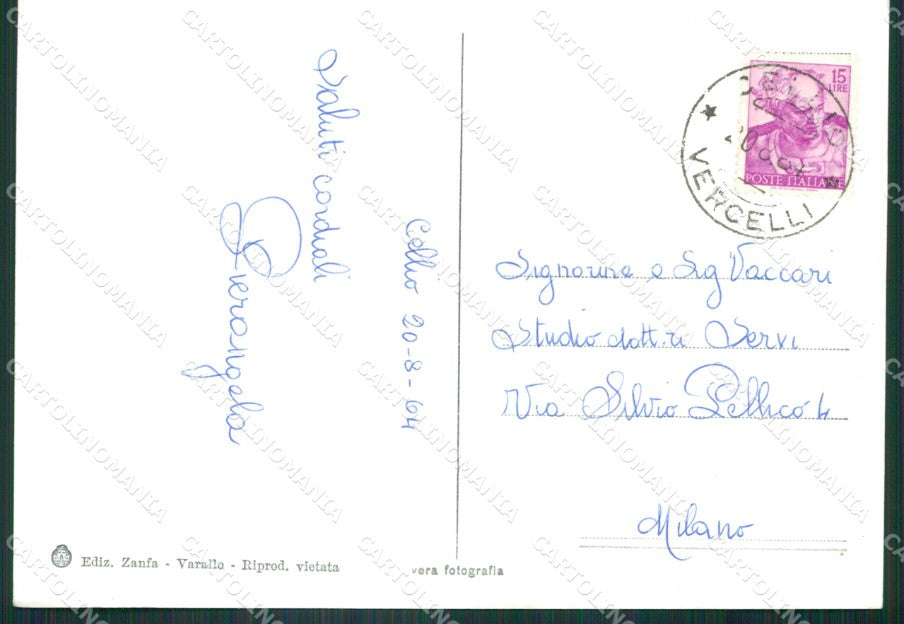 Saluti cordiali
Pierangela
Cellio 20-8-64
15
LIRE
POSTE ITALIANE
VERCELLI
Signorine e Sig Vaccari
Studio dott.ri Servi
Via Silvio Pellico 4
Milano
Ediz. Zanfa - Varallo - Riprod. vietata
vera fotografia
CARTOLINOMANIA